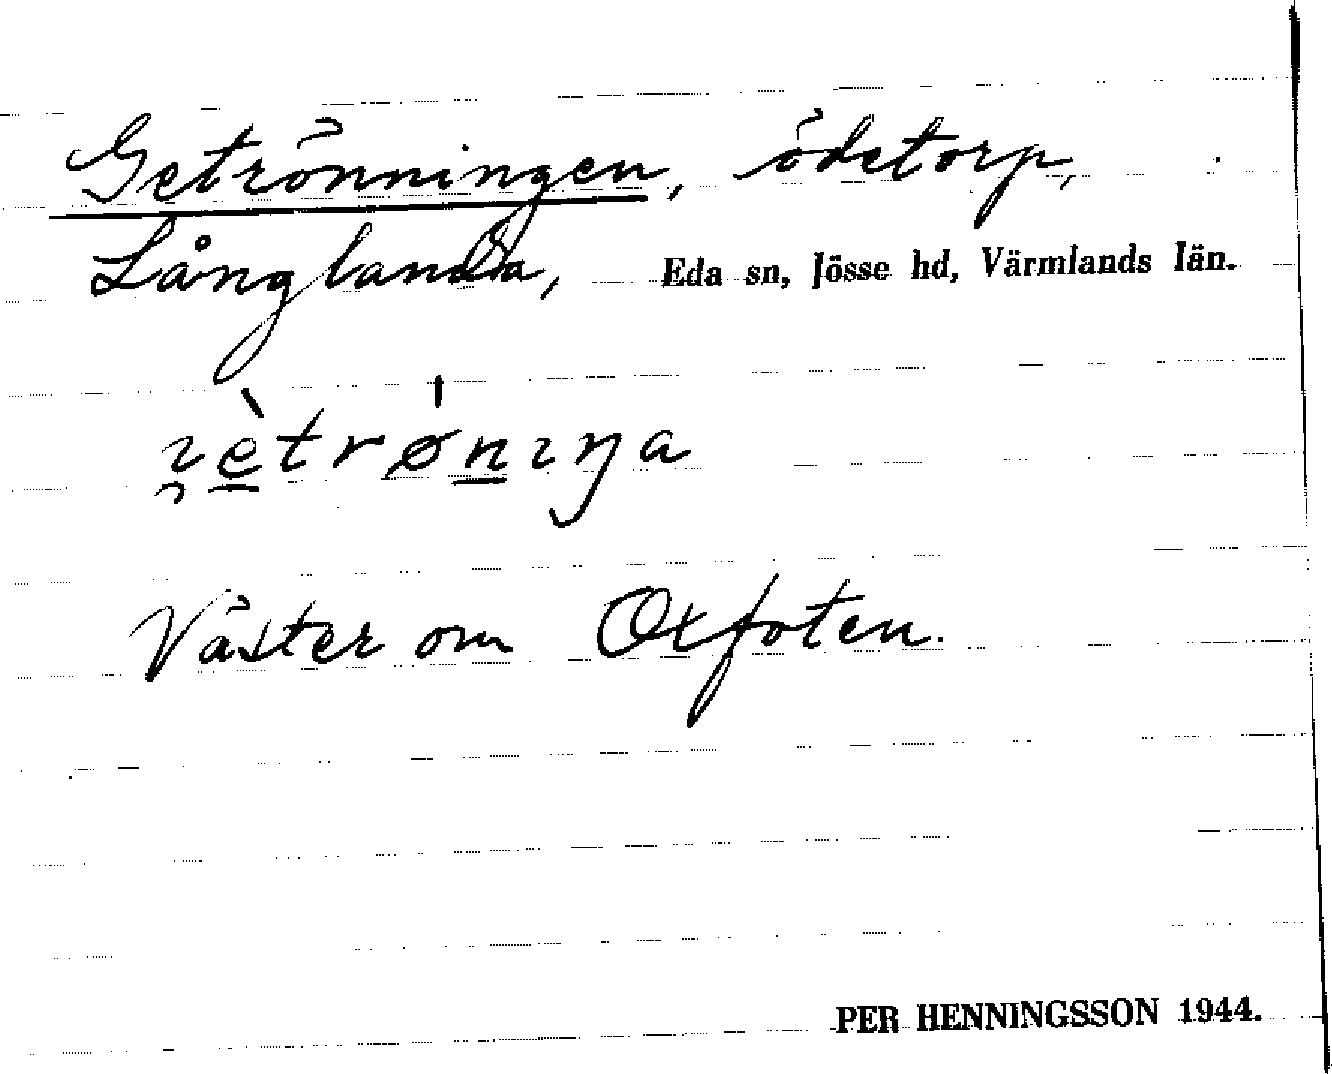 Getrönningen, ödetorp,
Långlanda, Eda sn, Jösse hd, Värmlands län.
ı̯è̠trø̍n̠ıŋa
Väster om Oxfoten.
PER HENNINGSSON 1944.